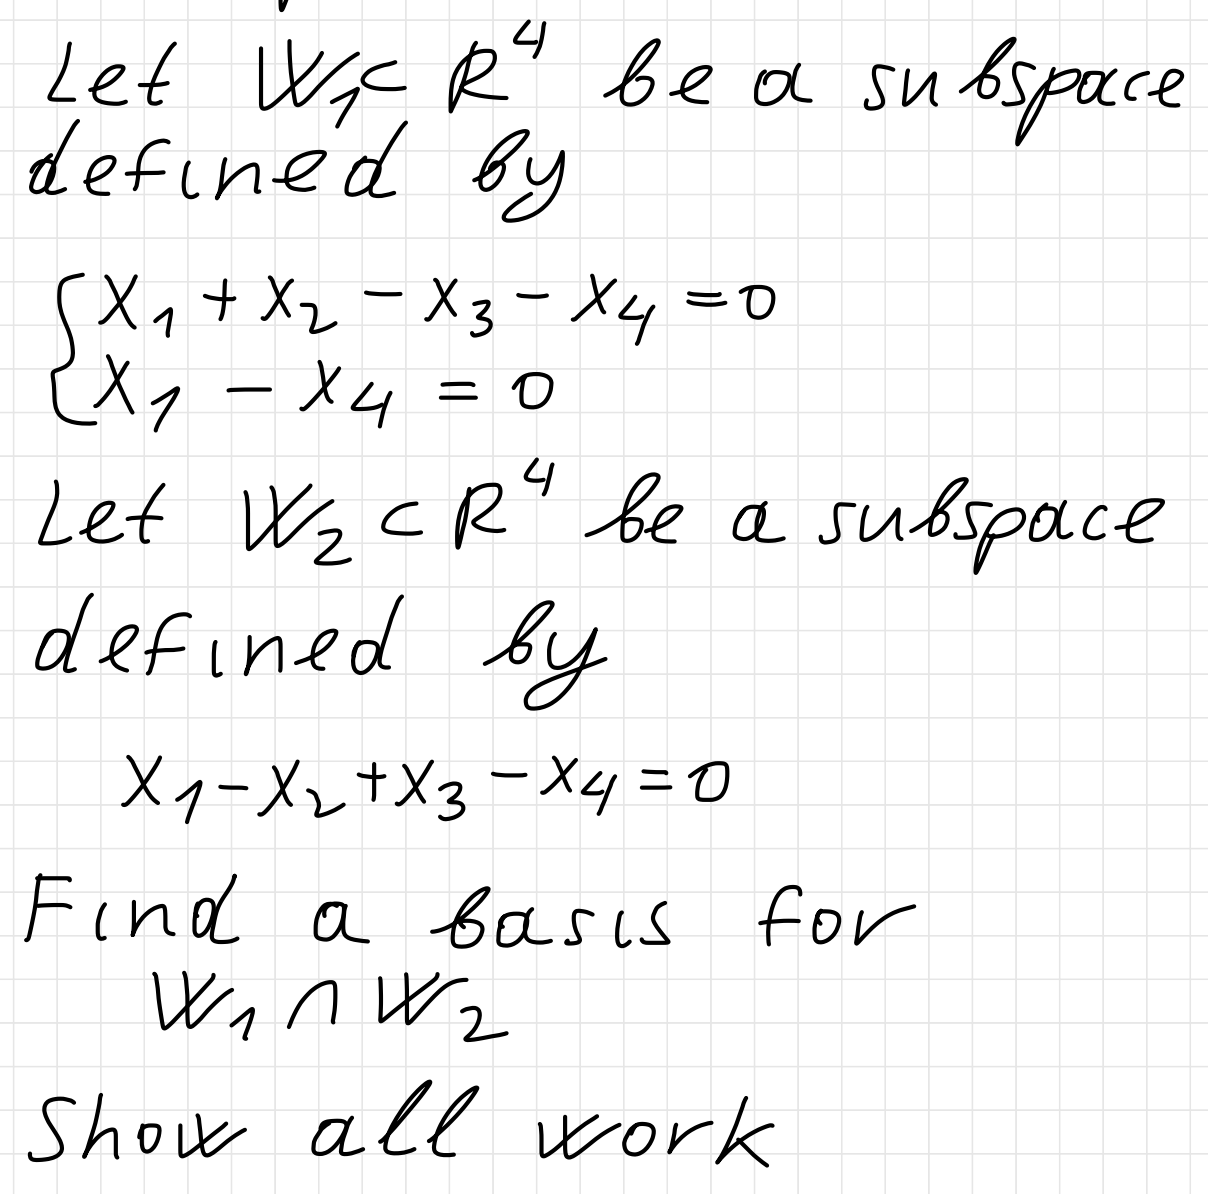 Let W₁ ⊂ R⁴ be a subspace
defined by
{ x₁ + x₂ - x₃ - x₄ = 0
x₁ - x₄ = 0
Let W₂ ⊂ R⁴ be a subspace
defined by
x₁ - x₂ + x₃ - x₄ = 0
Find a basis for
W₁ ∩ W₂
Show all work